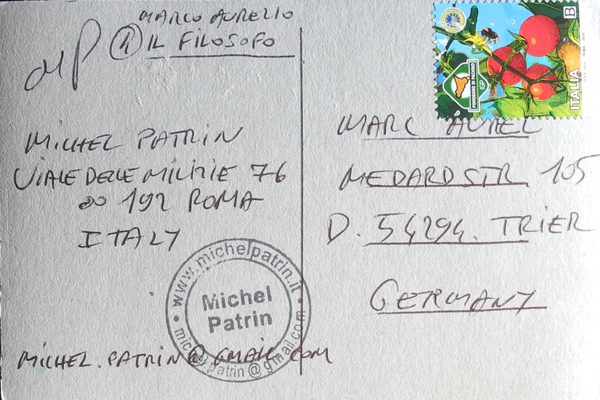 MARCO AURELIO
MP 1 IL FILOSOFO
MICHEL PATRIN
VIALE DELLE MILIZIE 76
00 192 ROMA
ITALY
www.michelpatrin.it
Michel
Patrin
michel.patrin@gmail.com
MICHEL.PATRIN@GMAIL.COM
B
ITALIA
MARC AUREL
MEDARDSTR. 105
D. 54294. TRIER
GERMANY